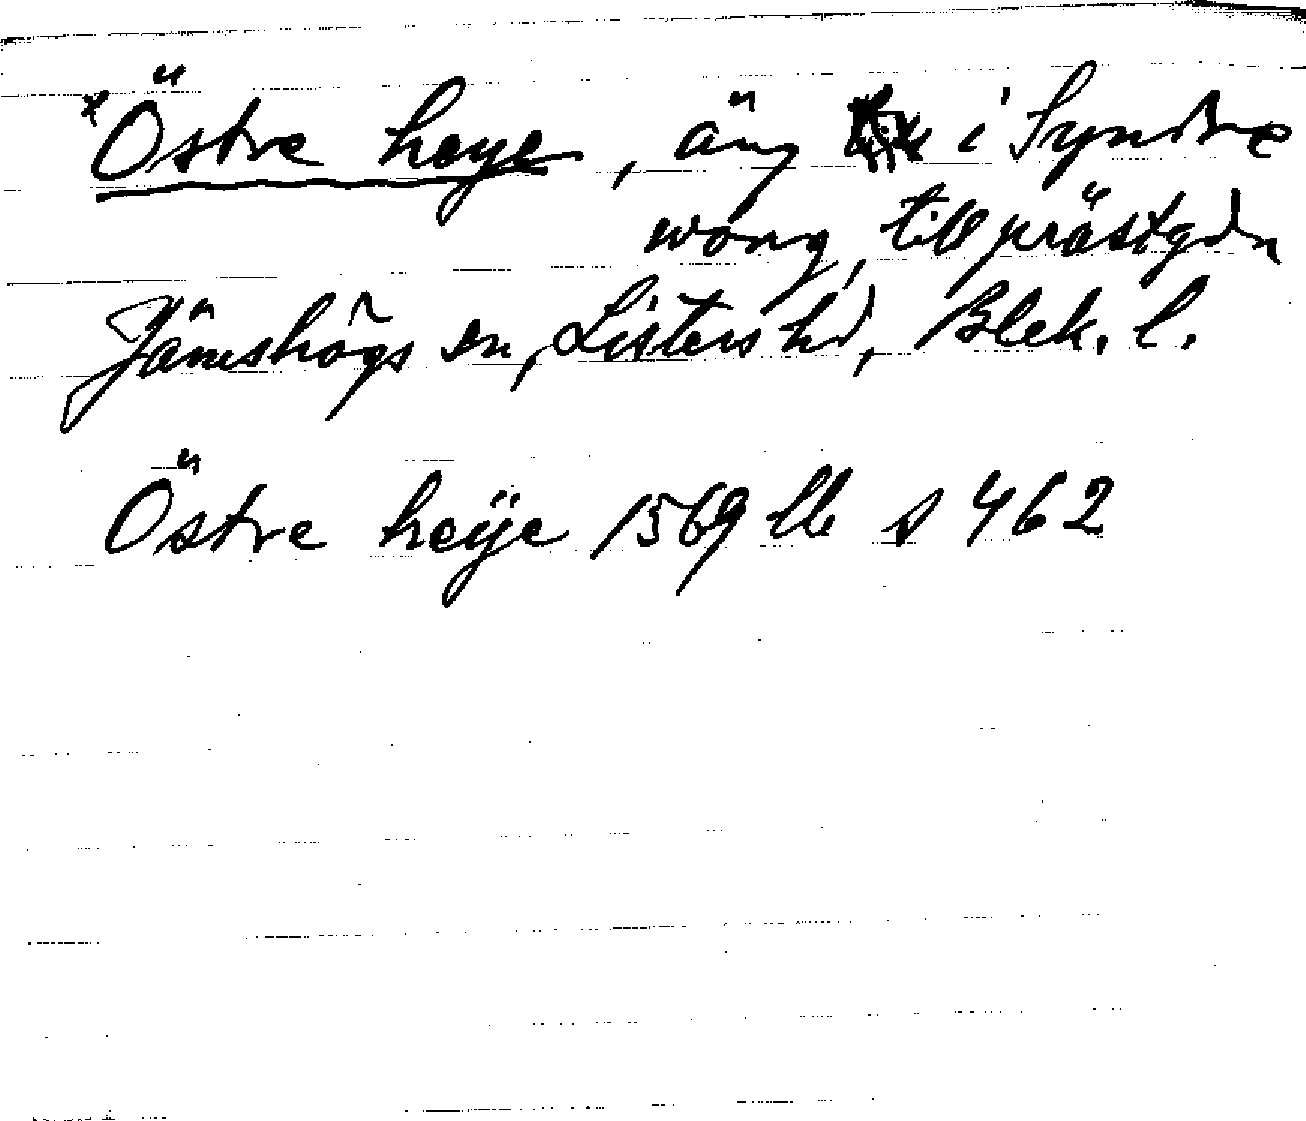 *Östre heye, äng i Syndre
wong, till prästgdn
Jämshögs sn, Listers hd, Blek. l.
Östre heÿe 1569 lb s 462